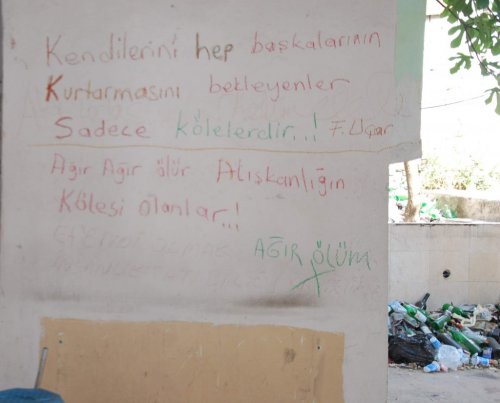 Kendilerini hep başkalarının
Kurtarmasını bekleyenler
Sadece kölelerdir...! F. Uçar
Ağır Ağır ölür Alışkanlığın
Kölesi olanlar..!
AĞIR ÖLÜM